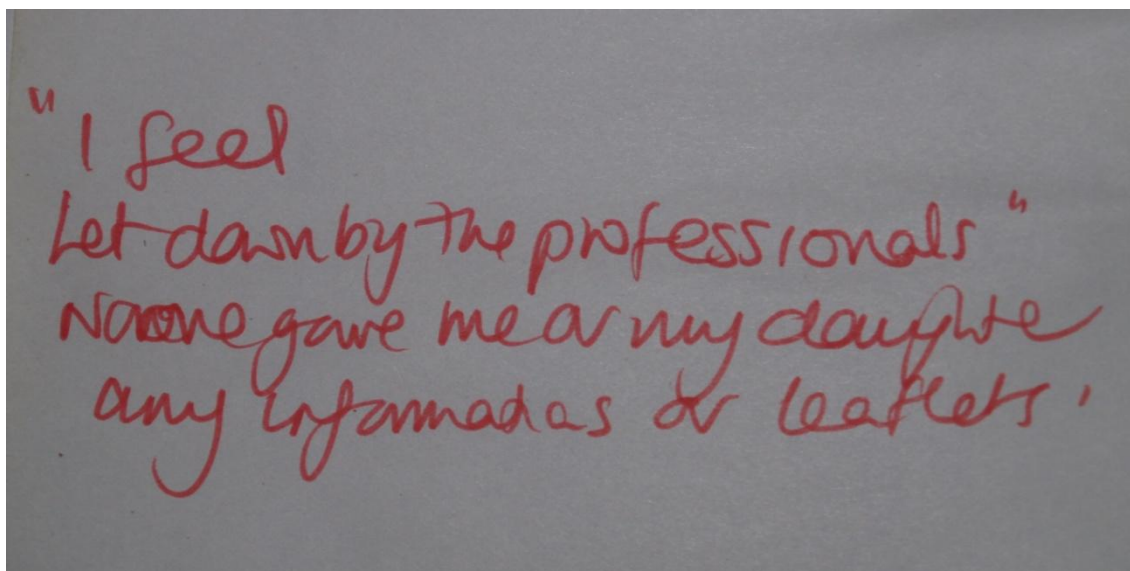 "I feel
Let down by the professionals"
No one gave me or my daughter
any informations or leaflets.